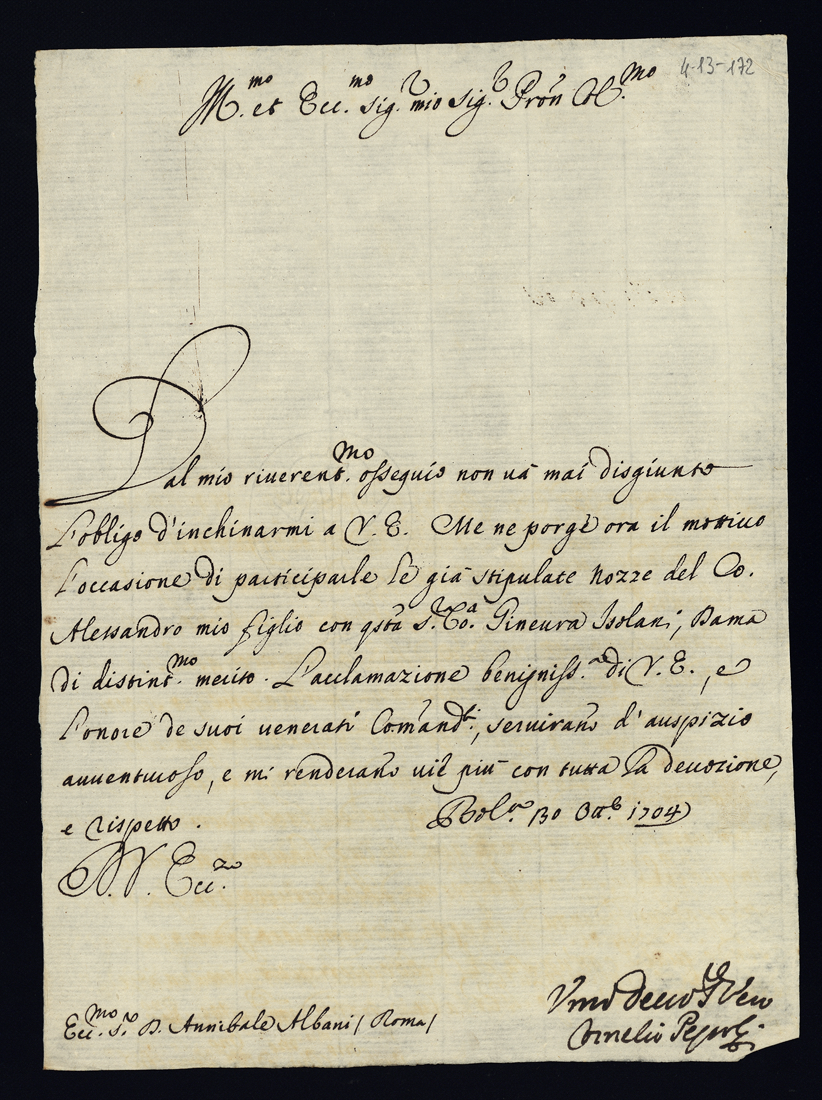 4-13-172
Ill.mo et Ecc.mo sig.r mio sig.r Pron Col.mo
Dal mio riverent.mo osseguio non và mai disgiunto
l'obligo d'inchinarmi a V. E. Me ne porge ora il mottivo
l'occasione di participarle le già stipulate nozze del Co.
Alessandro mio figlio con qsta S.ra Co.a Gineura Isolani, Dama
di distint.mo merito. L'acclamazione benigniss.a di V. E., e
l'onore de suoi venerati Comandi, serviranno d'auspizio
avventuroso, e mi renderanno vie più con tutta la devozione,
e rispetto.
Bol.a 30 Ott.e 1704
D. V. Ecc.za
Ecc.mo S.r D. Annibale Albani / Roma /
Umo Devo Ser Vero
Cornelio Pepoli